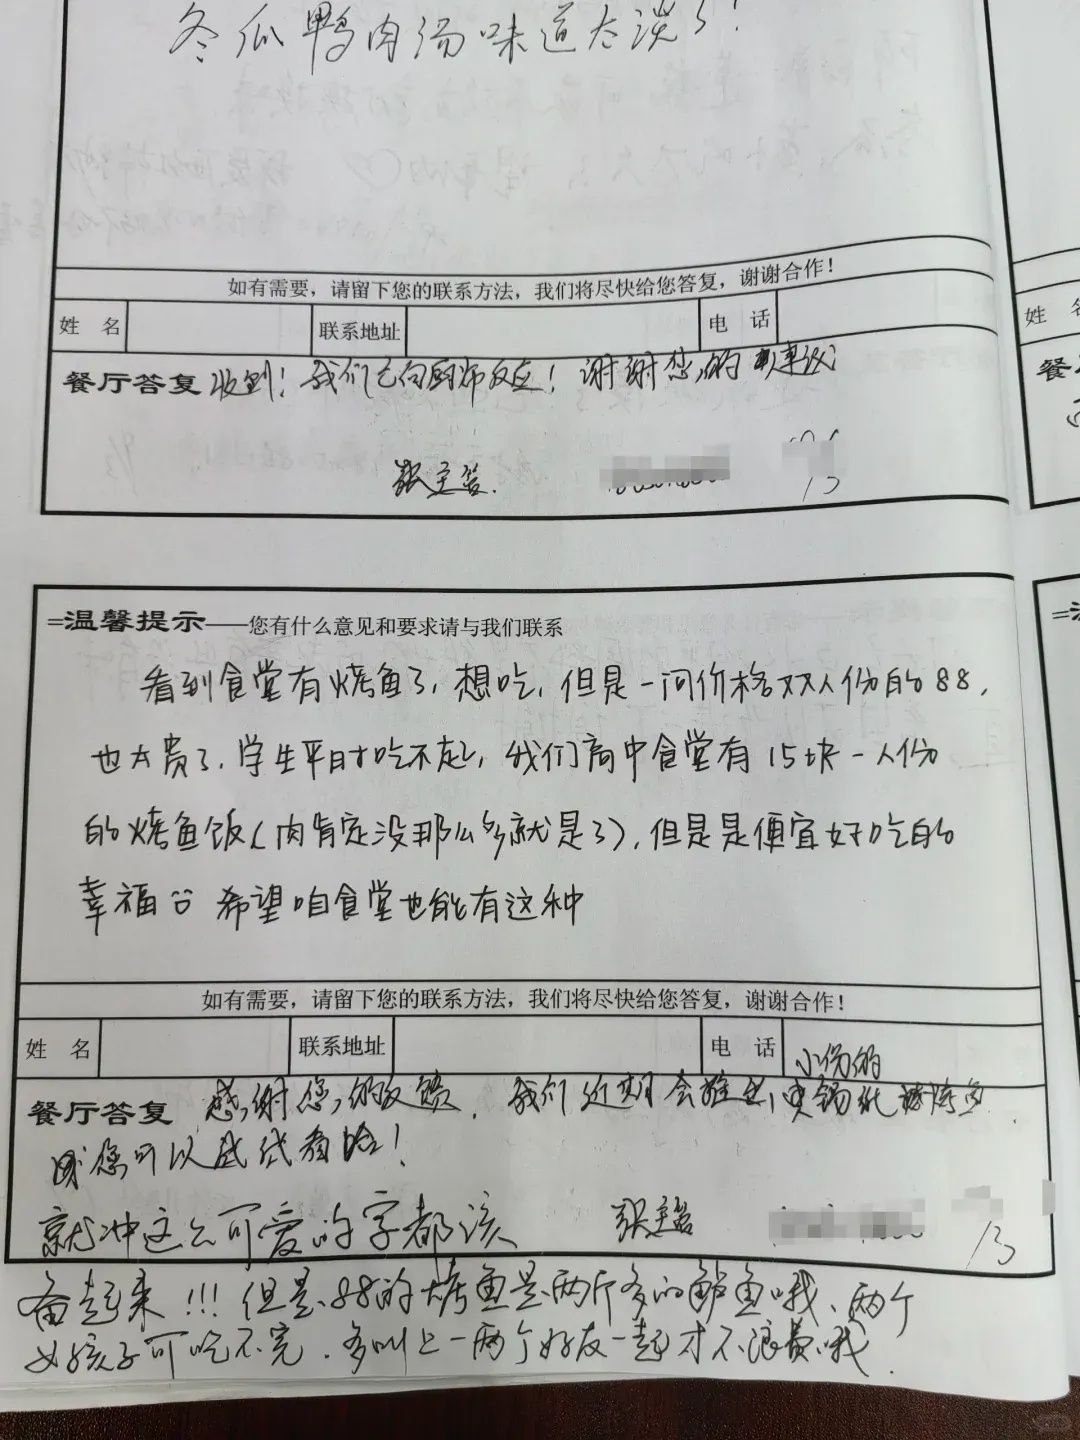 冬瓜鸭肉汤味道太淡了!
如有需要，请留下您的联系方法，我们将尽快给您答复，谢谢合作！
姓 名 联系地址 电 话
姓 名
餐厅答复 收到！我们已向厨师反应！谢谢您的建议
餐
张主管.
=温馨提示——您有什么意见和要求请与我们联系
看到食堂有烤鱼了，想吃，但是一问价格双人份的88，
也太贵了，学生平时吃不起，我们高中食堂有15块一人份
的烤鱼饭（肉肯定没那么多就是了），但是是便宜好吃的
幸福 希望咱食堂也能有这种
如有需要，请留下您的联系方法，我们将尽快给您答复，谢谢合作！
姓 名 联系地址 电 话
小份的
餐厅答复 感谢您的反馈，我们近期会推出
您可以试试看哈！
就冲这么可爱的字都该 张主管
奋起来!!!但是88的烤鱼是两斤多的鲈鱼哦、两个
女孩子可吃不完.多叫上一两个好友一起才不浪费哦.